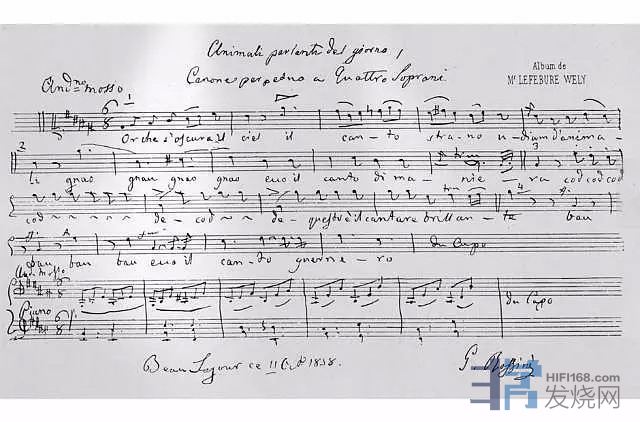 Animali parlanti del giorno
Canone perpetuo a Quattro Soprani
Album de
Mr LEFEBURE WELY
Andno mosso
1
Or che s'oscura il ciel il can-to stra-no u-diam d'anima-
2
3
li gnao gnau gnao gnao ecco il canto di ma-nie-ra cod cod cod
4
cod de-cod de-questo è il cantare brillan-te bau
bau bau bau ecco il can-to guerrie-ro
Da Capo
And. mosso
Piano
Da Capo
Beau Séjour ce 11 1858.
G. Rossini
HIFI168.com
发烧网